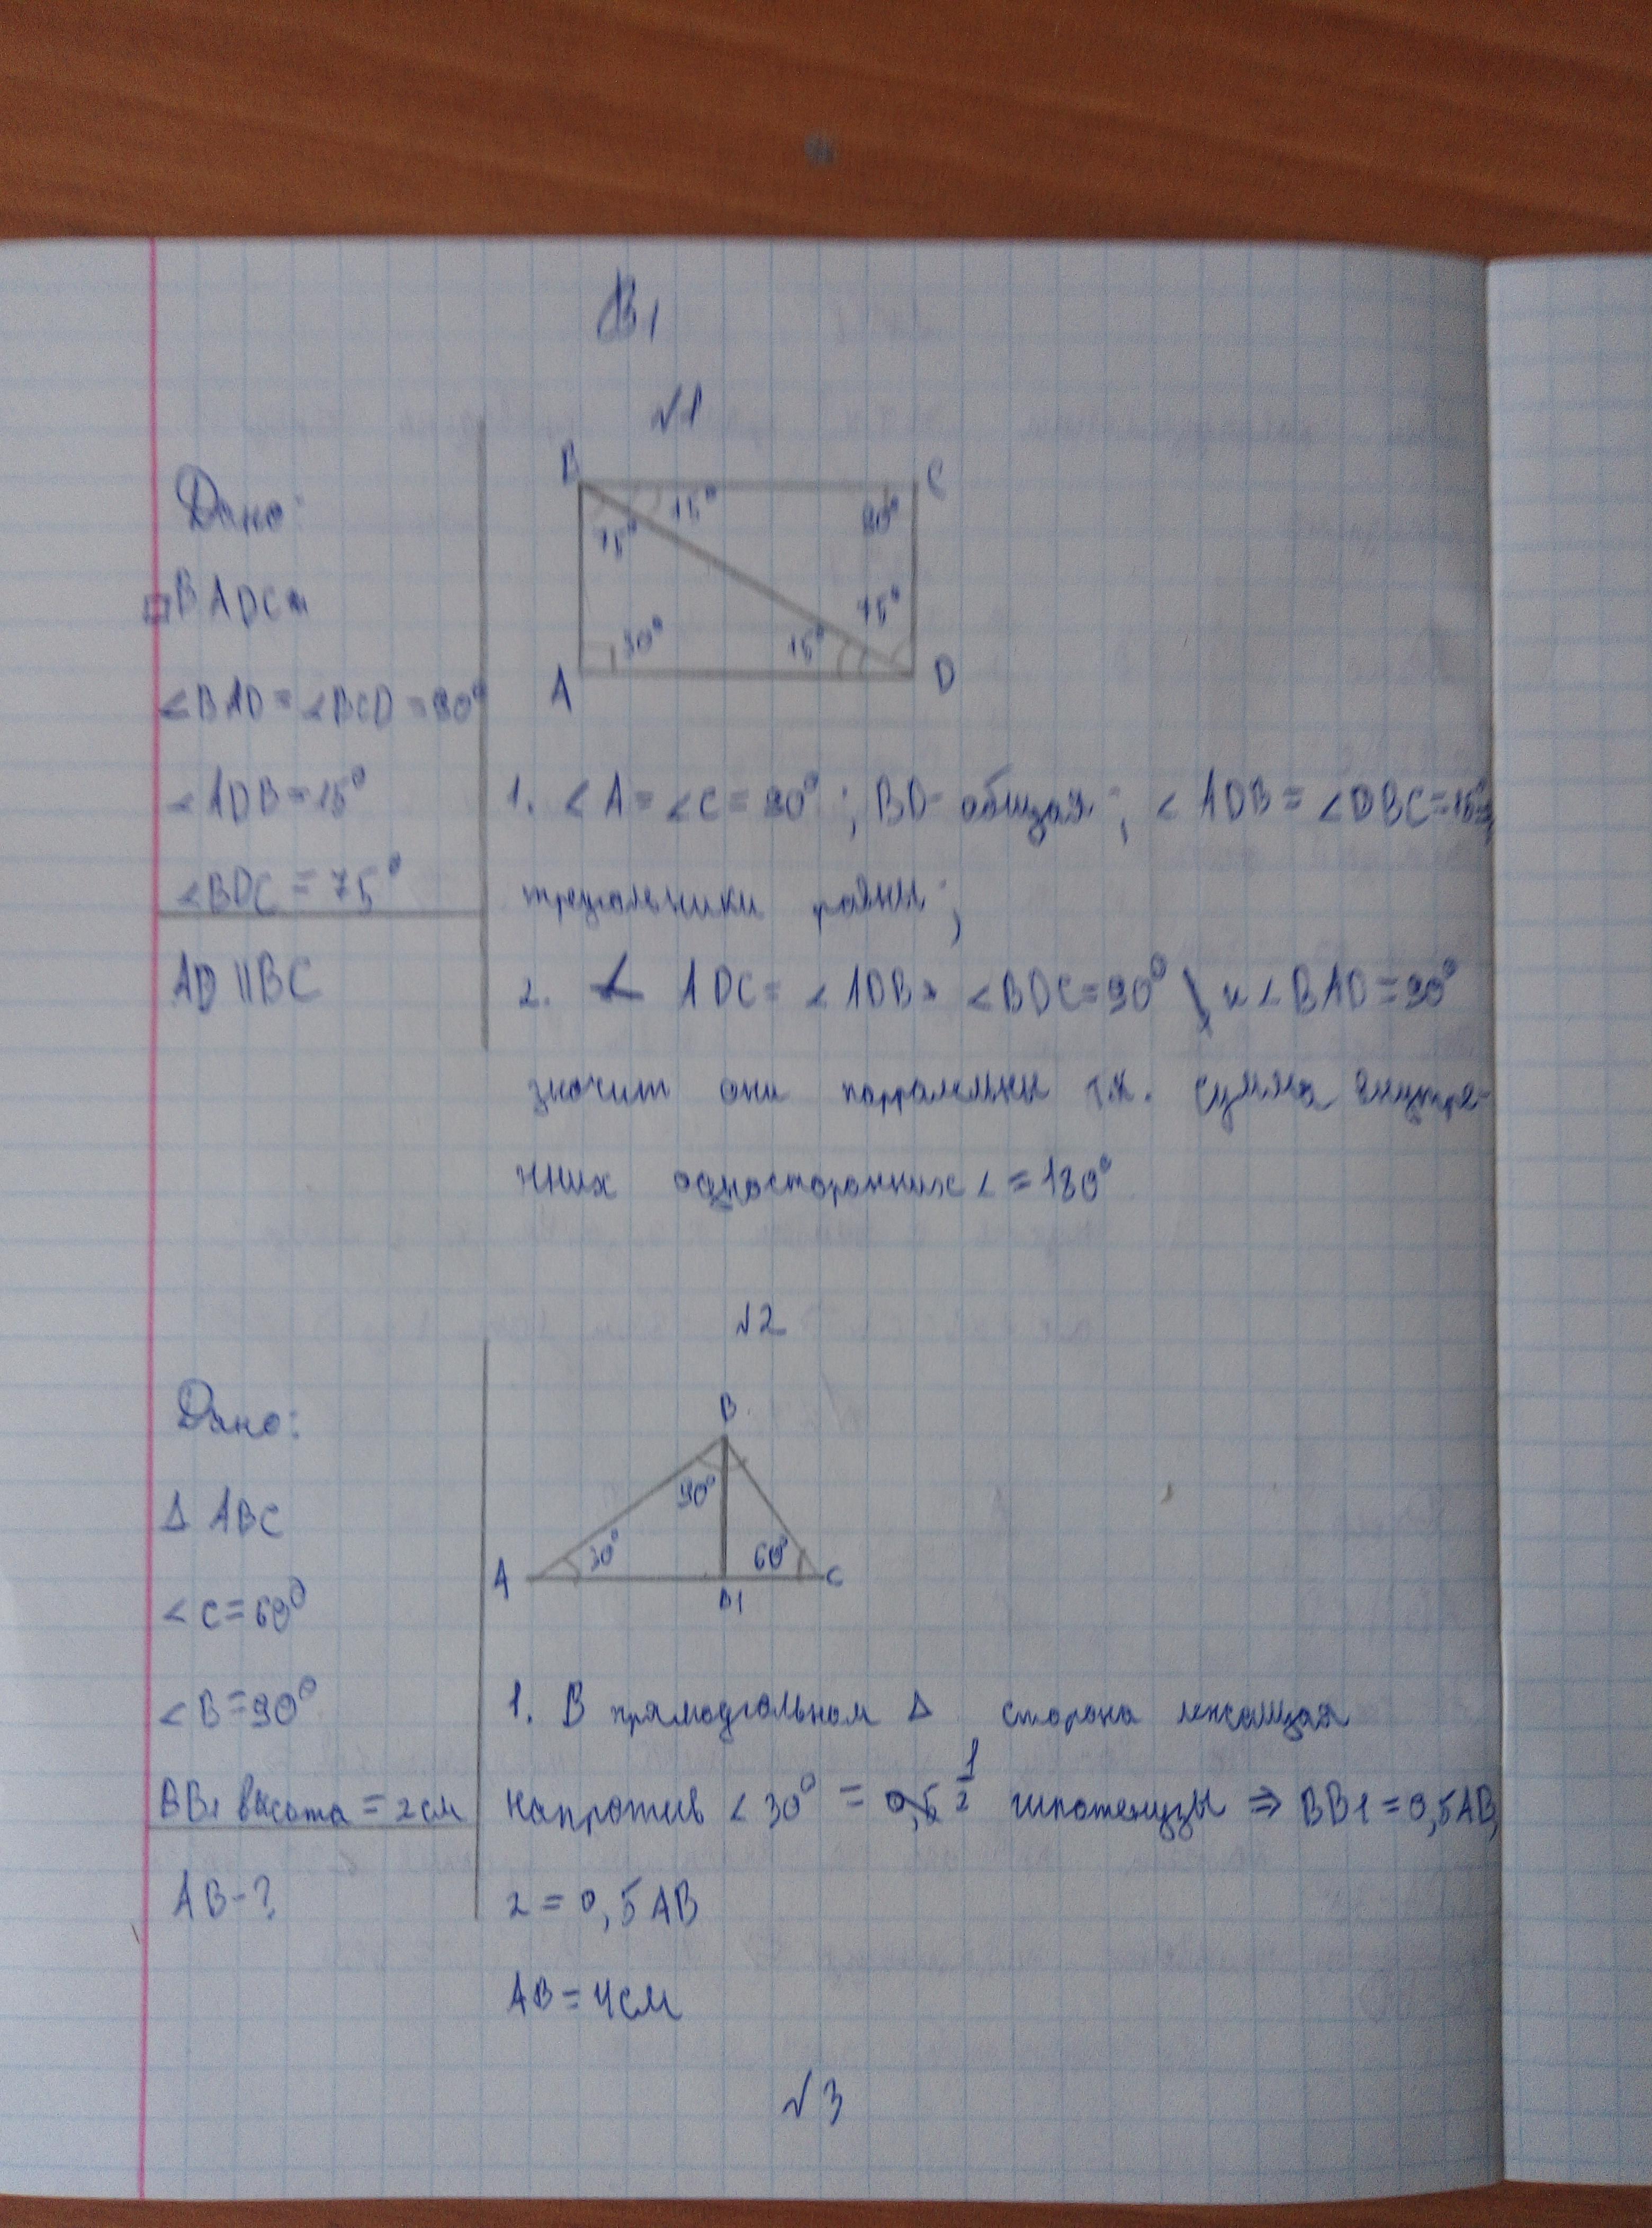 В1
№1
Дано:
BADC
∠BAD=∠BCD=90°
∠ADB=15°
∠BDC=75°
AD||BC
B
C
15°
75°
90°
75°
90°
15°
A
D
1. ∠A=∠C=90°; BD- общая; ∠ADB=∠DBC=15°
треугольники равны;
2. ∠ ADC=∠ADB+∠BDC=90° и ∠BAD=90°
значит они парралельны т.к. сумма внутре-
нних односторонних ∠=180°
№2
Дано:
Δ ABC
∠C=60°
∠B=90°
BB1 высота=2см
AB-?
B
90°
30°
60°
A
B1
C
1. В прямоугольном Δ сторона лежащая
напротив ∠30°= 1/2 гипотенузы ⇒ BB1=0,5AB,
2=0,5AB
AB=4см
№3